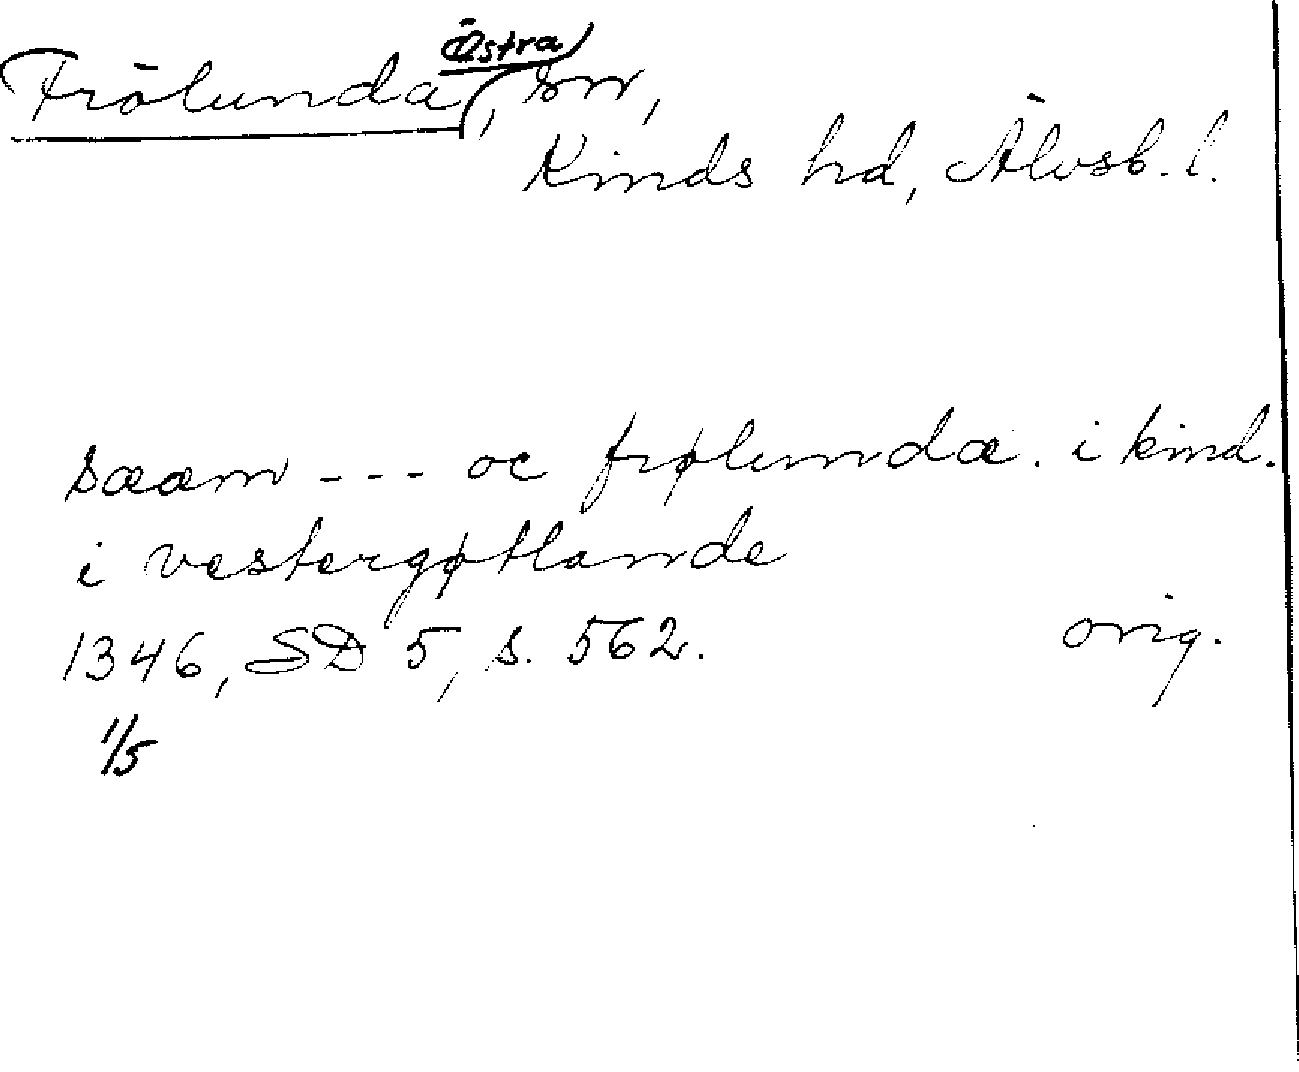 Frölunda, Östra, sn,
Kinds hd, Älvsb. l.
sææm --- oc frølundæ. i kind.
i vestergøtlande
1346, SD 5, s. 562. orig.
1/5